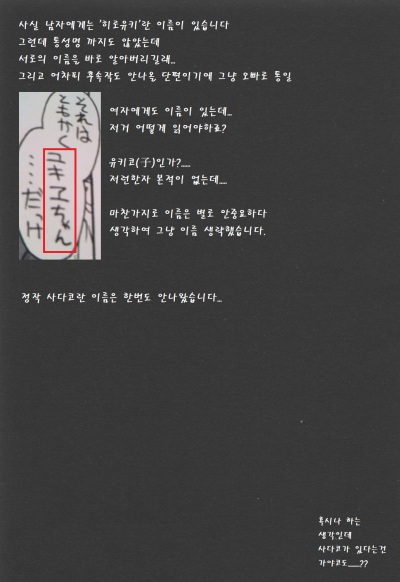 사실 남자에게는 '히로유키'란 이름이 있습니다
그런데 통성명 까지도 않았는데
서로의 이름을 바로 알아버리길래...
그리고 어차피 후속작도 안나올 단편이기에 그냥 오빠로 통일
여자에게도 이름이 있는데...
저거 어떻게 읽어야하죠?
유키코(子)인가?.....
저런한자 본적이 없는데....
마찬가지로 이름은 별로 안중요하다
생각하여 그냥 이름 생략했습니다.
それは
ともかく
ユキエちゃん
……だっけ
정작 사다코란 이름은 한번도 안나왔습니다...
혹시나 하는
생각인데
사다코가 있다는건
가야코도......??